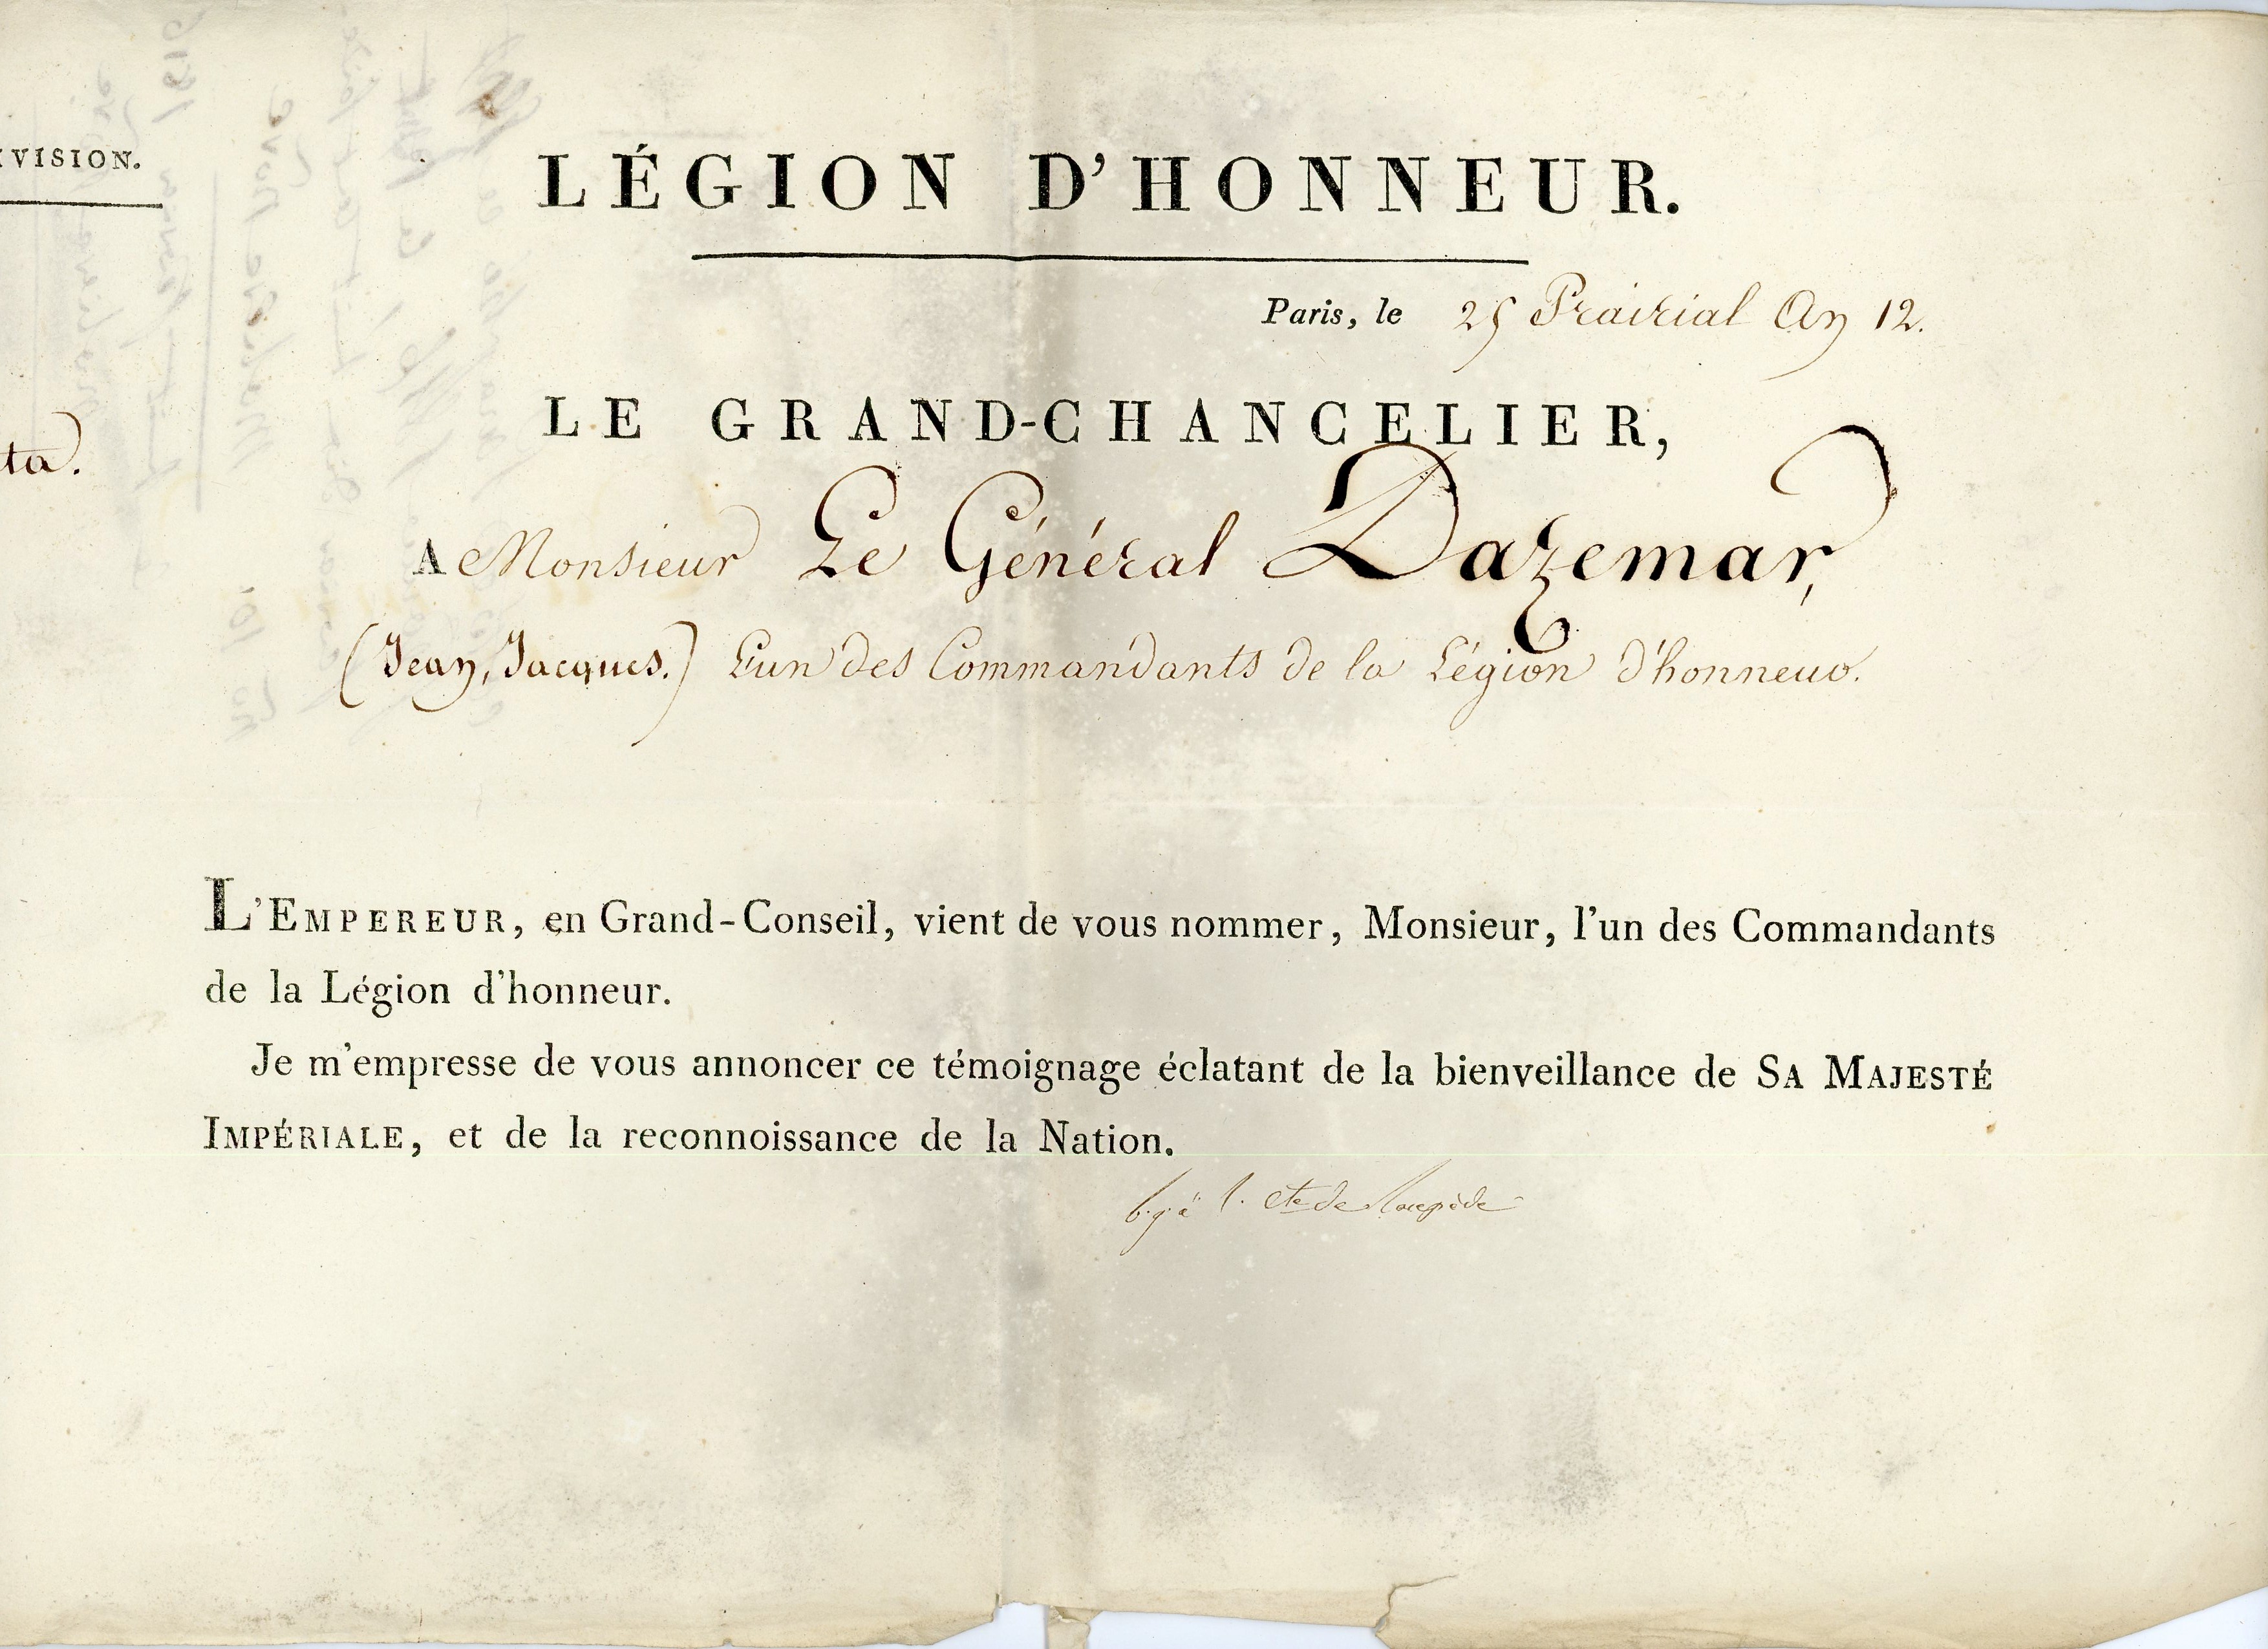 IVISION.
LÉGION D'HONNEUR.
Paris, le 25 Prairial An 12.
LE GRAND-CHANCELIER,
ta.
A Monsieur Le Général Dazemar,
(Jean, Jacques.) L'un des Commandants de la Légion d'honneur.
L'EMPEREUR, en Grand-Conseil, vient de vous nommer, Monsieur, l'un des Commandants
de la Légion d'honneur.
Je m'empresse de vous annoncer ce témoignage éclatant de la bienveillance de SA MAJESTÉ
IMPÉRIALE, et de la reconnoissance de la Nation.
b. g. é. l. cte de Lacepède